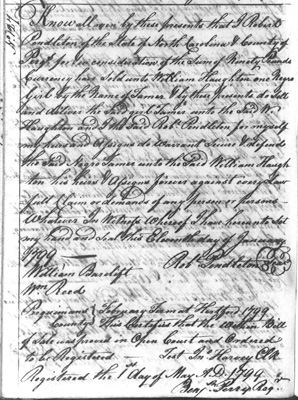 Know all men by these presents that I Robert
Pendleton of the State of North Carolina & County of
for & in consideration of the Sum of Ninety Pounds
Currency have Sold unto William Haughton one Negro
Girl by the Name of Tamer & by these presents do Sell
and deliver the Said Girl Tamer unto the Said W
Haughton and I the Said Robt Pendleton for myself
my heirs and Assigns do Warrant Secure & defend
the Said Negro Tamer unto the Said William Haugh
ton his heirs & Assigns forever against every Law
full Claim or demands of any person or persons
Whatever In Witness Whereof I have hereunto Set
my hand and Seal this Eleventh day of January
1799
Robt Pendleton
William Barclift
Wm Reed
Perquimans February Term at Hertford 1799
County This Certifies that the Within Bill
of Sale was proved in Open Court and Ordered
to be Registered Test Jn Harvey Clk
Registered the 1st day of May A.D. 1799
Perry Regr